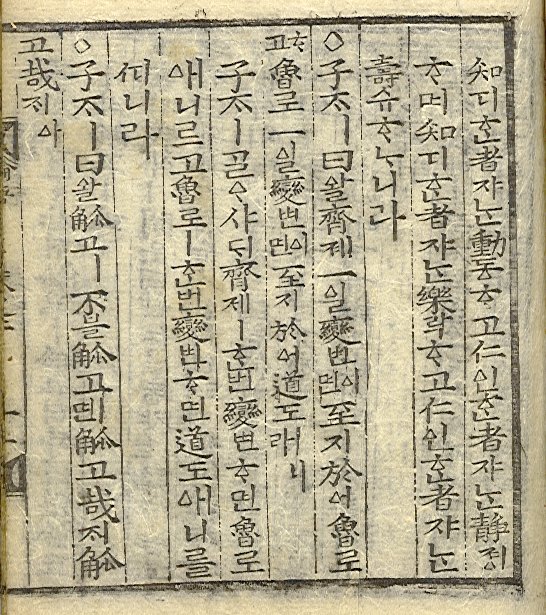 知디ᄒᆞᆫ者쟈ᄂᆞᆫ動동ᄒᆞ고仁인ᄒᆞᆫ者쟈ᄂᆞᆫ靜졍
ᄒᆞ며知디ᄒᆞᆫ者쟈ᄂᆞᆫ樂락ᄒᆞ고仁인ᄒᆞᆫ者쟈ᄂᆞᆫ
壽슈ᄒᆞᄂᆞ니라
○子ᄌᆞㅣ曰왈齊졔一일變변이면至지於어魯로
ᄒᆞ고魯로一일變변이면至지於어道도ㅣ니라
子ᄌᆞㅣᄀᆞᆯᄋᆞ샤ᄃᆡ齊졔ㅣᄒᆞᆫ번變변ᄒᆞ면魯로
애니르고魯로ㅣᄒᆞᆫ번變변ᄒᆞ면道도애니를
ᄯᅵ니라
○子ᄌᆞㅣ曰왈觚고ㅣ不블觚고ㅣ면觚고哉ᄌᆡ觚
고哉ᄌᆡ아